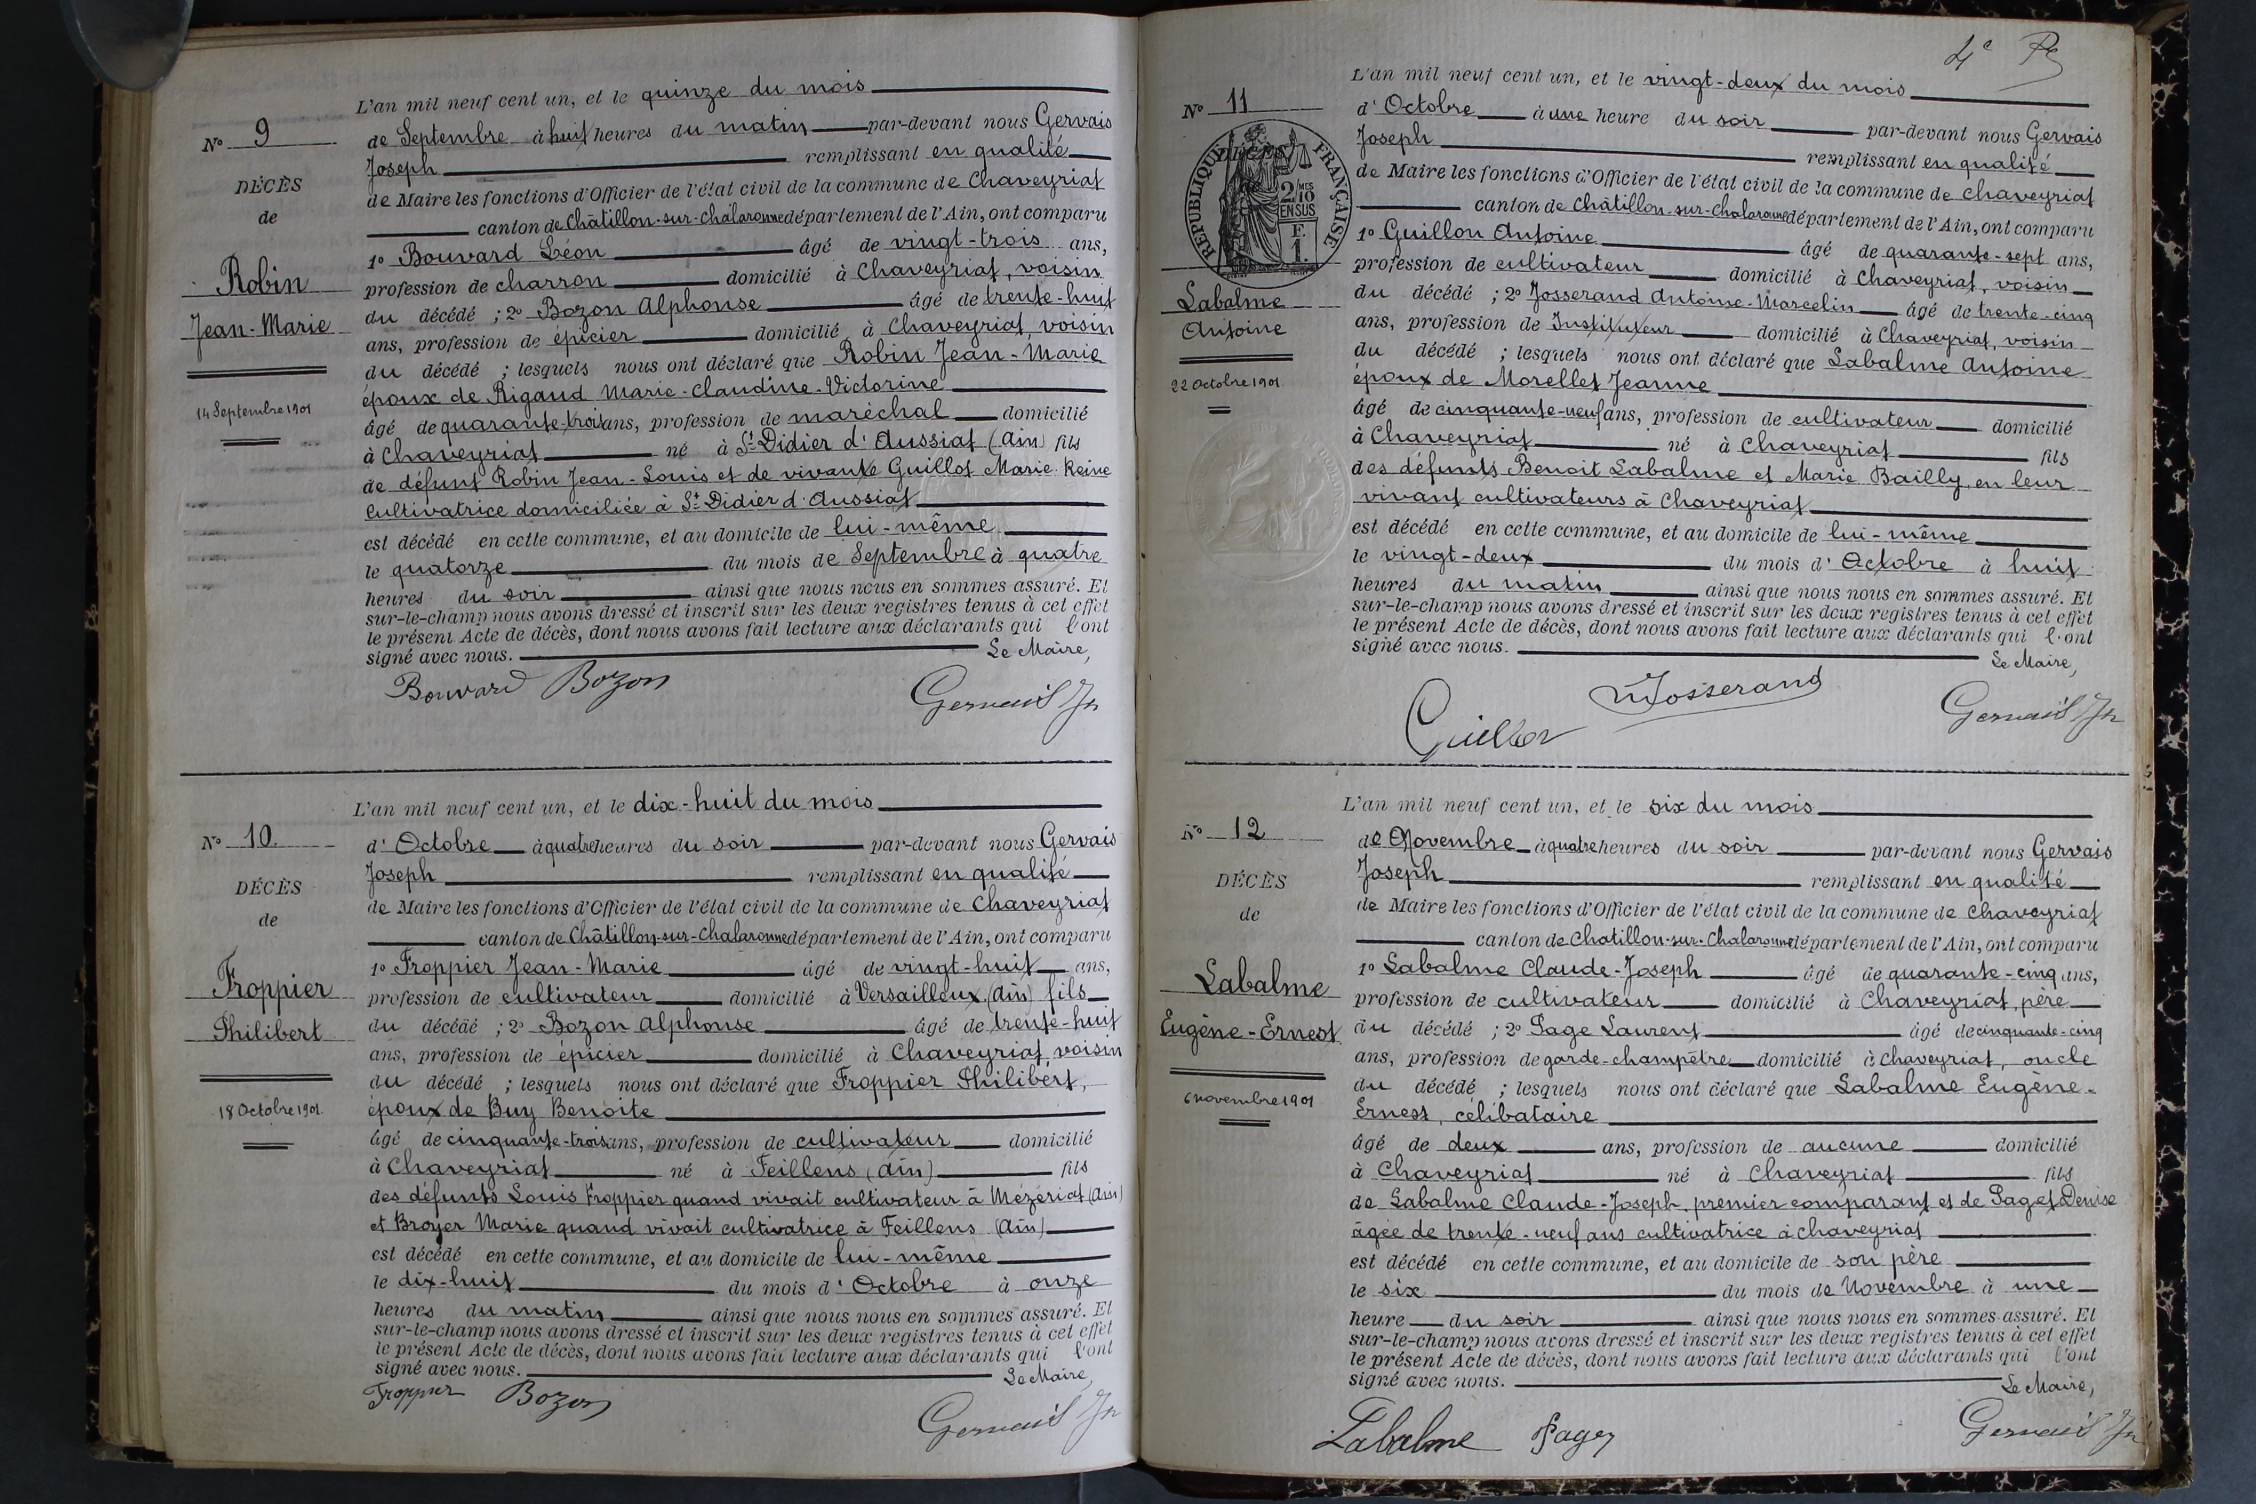 L'an mil neuf cent un, et le quinze du mois
N° 9
de Septembre à huit heures du matin par-devant nous Gervais
Joseph remplissant en qualité
DÉCÈS
de Maire les fonctions d'Officier de l'état civil de la commune de Chaveyriat
de
canton de Châtillon-sur-Chalaronne département de l'Ain, ont comparu
1° Bouvard Léon âgé de vingt-trois ans,
Robin
profession de charron domicilié à Chaveyriat, voisin
du décédé ; 2° Bozon Alphonse âgé de trente-huit
Jean-Marie
ans, profession de épicier domicilié à Chaveyriat, voisin
du décédé ; lesquels nous ont déclaré que Robin Jean-Marie
époux de Rigaud Marie-Claudine-Victorine
14 Septembre 1901
âgé de quarante-trois ans, profession de maréchal domicilié
à Chaveyriat né à St Didier d'Aussiat (Ain) fils
de défunt Robin Jean-Louis et de vivante Guillot Marie-Reine
cultivatrice domiciliée à St Didier d'Aussiat
est décédé en cette commune, et au domicile de lui-même
le quatorze du mois de Septembre à quatre
heures du soir ainsi que nous nous en sommes assuré. Et
sur-le-champ nous avons dressé et inscrit sur les deux registres tenus à cet effet
le présent Acte de décès, dont nous avons fait lecture aux déclarants qui l'ont
signé avec nous. Le Maire,
Bouvard Bozon Gervais Jh
L'an mil neuf cent un, et le dix-huit du mois
N° 10.
d'Octobre à quatre heures du soir par-devant nous Gervais
Joseph remplissant en qualité
DÉCÈS
de Maire les fonctions d'Officier de l'état civil de la commune de Chaveyriat
de
canton de Châtillon-sur-Chalaronne département de l'Ain, ont comparu
1° Froppier Jean-Marie âgé de vingt-huit ans,
Froppier
profession de cultivateur domicilié à Versailleux, (Ain) fils
Philibert
du décédé ; 2° Bozon Alphonse âgé de trente-huit
ans, profession de épicier domicilié à Chaveyriat, voisin
du décédé ; lesquels nous ont déclaré que Froppier Philibert,
18 Octobre 1901.
époux de Buy Benoite
âgé de cinquante-trois ans, profession de cultivateur domicilié
à Chaveyriat né à Feillens (Ain) fils
des défunts Louis Froppier quand vivait cultivateur à Mézériat (Ain)
et Broyer Marie quand vivait cultivatrice à Feillens (Ain)
est décédé en cette commune, et au domicile de lui-même
le dix-huit du mois d'Octobre à onze
heures du matin ainsi que nous nous en sommes assuré. Et
sur-le-champ nous avons dressé et inscrit sur les deux registres tenus à cet effet
le présent Acte de décès, dont nous avons fait lecture aux déclarants qui l'ont
signé avec nous. Le Maire,
Froppier Bozon Gervais Jh
4e
L'an mil neuf cent un, et le vingt-deux du mois
N° 11
d'Octobre à une heure du soir par-devant nous Gervais
Joseph remplissant en qualité
RÉPUBLIQUE FRANÇAISE
2/10 MES
EN SUS
F.
1.
de Maire les fonctions d'Officier de l'état civil de la commune de Chaveyriat
canton de Châtillon-sur-Chalaronne département de l'Ain, ont comparu
1° Guillon Antoine âgé de quarante-sept ans,
profession de cultivateur domicilié à Chaveyriat, voisin
Labalme
du décédé ; 2° Josserand Antoine-Marcelin âgé de trente-cinq
Antoine
ans, profession de Instituteur domicilié à Chaveyriat, voisin
du décédé ; lesquels nous ont déclaré que Labalme Antoine
22 Octobre 1901
époux de Morellet Jeanne
âgé de cinquante-neuf ans, profession de cultivateur domicilié
à Chaveyriat né à Chaveyriat fils
des défunts Benoit Labalme et Marie Bailly, en leur
vivant cultivateurs à Chaveyriat
est décédé en cette commune, et au domicile de lui-même
le vingt-deux du mois d'Octobre à huit
heures du matin ainsi que nous nous en sommes assuré. Et
sur-le-champ nous avons dressé et inscrit sur les deux registres tenus à cet effet
le présent Acte de décès, dont nous avons fait lecture aux déclarants qui l'ont
signé avec nous. Le Maire,
Guillon Josserand Gervais Jh
L'an mil neuf cent un, et le six du mois
N° 12
de Novembre à quatre heures du soir par-devant nous Gervais
Joseph remplissant en qualité
DÉCÈS
de Maire les fonctions d'Officier de l'état civil de la commune de Chaveyriat
de
canton de Chatillon-sur-Chalaronne département de l'Ain, ont comparu
1° Labalme Claude-Joseph âgé de quarante-cinq ans,
Labalme
profession de cultivateur domicilié à Chaveyriat, père
Eugène-Ernest
du décédé ; 2° Page Laurent âgé de cinquante-cinq
ans, profession de garde-champêtre domicilié à Chaveyriat, oncle
du décédé ; lesquels nous ont déclaré que Labalme Eugène-
6 novembre 1901
Ernest, célibataire
âgé de deux ans, profession de aucune domicilié
à Chaveyriat né à Chaveyriat fils
de Labalme Claude-Joseph, premier comparant et de Paget Denise
âgée de trente-neuf ans cultivatrice à Chaveyriat
est décédé en cette commune, et au domicile de son père
le six du mois de Novembre à une
heure du soir ainsi que nous nous en sommes assuré. Et
sur-le-champ nous avons dressé et inscrit sur les deux registres tenus à cet effet
le présent Acte de décès, dont nous avons fait lecture aux déclarants qui l'ont
signé avec nous. Le Maire,
Labalme Page Gervais Jh